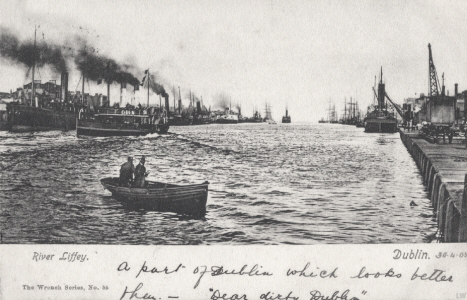 River Liffey. Dublin. 30-4-05
The Wrench Series, No. 54
A part of Dublin which looks better
than. — "Dear dirty Dublin"